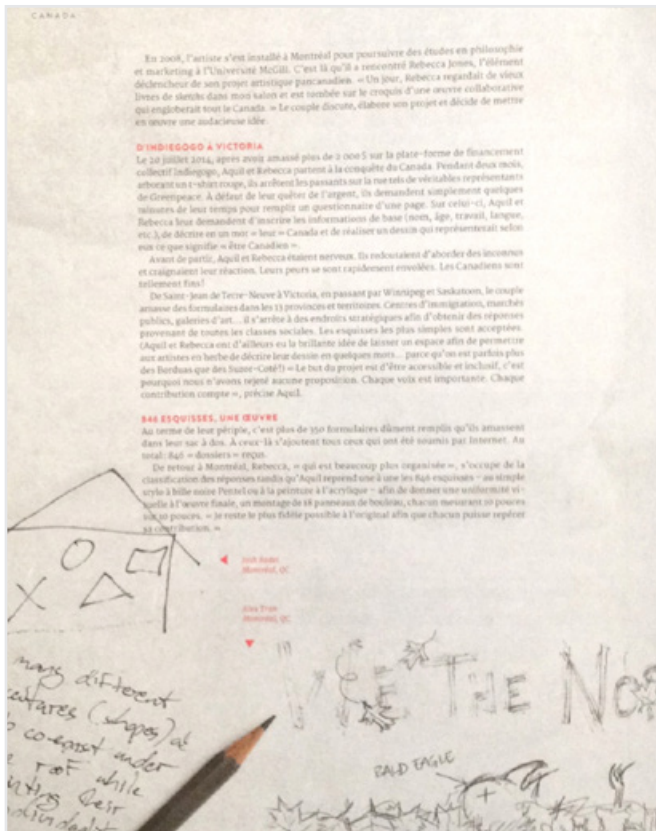 CANADA
En 2008, l'artiste s'est installé à Montréal pour poursuivre des études en philosophie
et marketing à l'Université McGill. C'est là qu'il a rencontré Rebecca Jones, l'élément
déclencheur de son projet artistique pancanadien. « Un jour, Rebecca regardait de vieux
livres de sketchs dans mon salon et est tombée sur le croquis d'une œuvre collaborative
qui engloberait tout le Canada. » Le couple discute, élabore son projet et décide de mettre
en œuvre une audacieuse idée.
D'INDIEGOGO À VICTORIA
Le 20 juillet 2014, après avoir amassé plus de 2 000 $ sur la plate-forme de financement
collectif Indiegogo, Aquil et Rebecca partent à la conquête du Canada. Pendant deux mois,
arborant un t-shirt rouge, ils arrêtent les passants sur la rue tels de véritables représentants
de Greenpeace. À défaut de leur quêter de l'argent, ils demandent simplement quelques
minutes de leur temps pour remplir un questionnaire d'une page. Sur celui-ci, Aquil et
Rebecca leur demandent d'inscrire les informations de base (nom, âge, travail, langue,
etc.), de décrire en un mot « leur » Canada et de réaliser un dessin qui représenterait selon
eux ce que signifie « être Canadien ».
Avant de partir, Aquil et Rebecca étaient nerveux. Ils redoutaient d'aborder des inconnus
et craignaient leur réaction. Leurs peurs se sont rapidement envolées. Les Canadiens sont
tellement fins!
De Saint-Jean de Terre-Neuve à Victoria, en passant par Winnipeg et Saskatoon, le couple
amasse des formulaires dans les 13 provinces et territoires. Centres d'immigration, marchés
publics, galeries d'art... il s'arrête à des endroits stratégiques afin d'obtenir des réponses
provenant de toutes les classes sociales. Les esquisses les plus simples sont acceptées.
(Aquil et Rebecca ont d'ailleurs eu la brillante idée de laisser un espace afin de permettre
aux artistes en herbe de décrire leur dessin en quelques mots... parce qu'on est parfois plus
des Borduas que des Suzor-Coté!) « Le but du projet est d'être accessible et inclusif, c'est
pourquoi nous n'avons rejeté aucune proposition. Chaque voix est importante. Chaque
contribution compte », précise Aquil.
846 ESQUISSES, UNE ŒUVRE
Au terme de leur périple, c'est plus de 350 formulaires dûment remplis qu'ils amassent
dans leur sac à dos. À ceux-là s'ajoutent tous ceux qui ont été soumis par Internet. Au
total: 846 « dossiers » reçus.
De retour à Montréal, Rebecca, « qui est beaucoup plus organisée », s'occupe de la
classification des réponses tandis qu'Aquil reprend une à une les 846 esquisses – au simple
stylo à bille noire Pentel ou à la peinture à l'acrylique – afin de donner une uniformité vi-
suelle à l'œuvre finale, un montage de 18 panneaux de bouleau, chacun mesurant 10 pouces
sur 10 pouces. « Je reste le plus fidèle possible à l'original afin que chacun puisse repérer
sa contribution. »
Montréal, QC
Alex Tran
Montréal, QC
many different
(shapes) at
coexist under
roof while
their
THE NO
BALD EAGLE